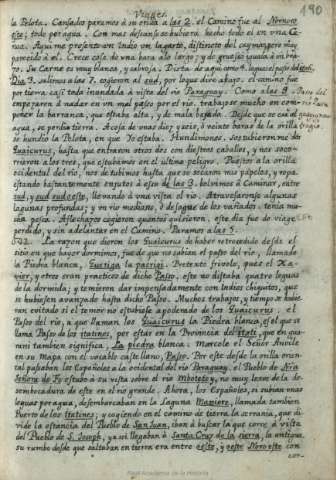 Viages.
190
la Pelota. Cansado paramos à su orilla a las 2. el Camino fue al Nornoro-
este; todo por agua. Con mas descanso se hubiera hecho todo el en una Ca-
noa. Aqui me presento un Indio un lagarto, distincto del
parecido à el. Crece cosa de una bara a lo largo y de gruesso
su Carne es muy blanca, y sabrosa. Dista de aqui como
Dia 3. salimos a las 7. cogieron al sud, por lo que dire abajo. el camino fue
por tierra casi toda inundada à vista del rio Paraguay. Como a las 9
empezaron à nadar en un mal passo por el rio. trabajose mucho en com-
poner la barranca, que estaba alta, y de mala bajada. Desde que se caia al
agua, se perdia tierra. Acosa de unas diez y seis, y veinte baras de la orilla
se hundio la Pelota, en que Yo estaba. Humildemente, sostubieron me dos
Guaicurus, hasta que entraron otros dos con diestros caballos, y nos soco-
rrieron a los tres, que estubimos en el ultimo peligro. Puestos a la orilla
occidental del rio, nos detubimos hasta que se secaron mis papeles, y ropa.
estando bastantemente enjutos à eso de las 3. bolvimos à Caminar, entre
sud, y sud sud este, llevando à una vista el rio. Atravesaronse algunas
lagunas profundas; y un rio mediano, ò desague de los bañados. tenia mu-
cha pesca. A flechazos cogieron quantos quisieron. este dia fue de viage
perdido, y sin adelantar en el Camino. Paramos a las 5.
La razon que dieron los Guaicurus de haber retrocedido desde el
sitio en que hayer dormimos, fue de que no sabian el passo del rio, llamado
la Piedra blanca,
otros eran practicos de dicho Passo. este no distaba quatro leguas
de la dormida; y temieron dar impensadamente con Indios chiquitos, que
se hubiessen avanzado hasta dicho Passo. Muchos trabajos, y tiempo se hubie-
ran evitado si el temor no estubiese apoderado de los Guaicurus. el
Passo del rio, a que llaman los Guaicurus la Piedra blanca, es el que se
llama Passo de los Itatines, por estar en la Provincia del Itati, que en gua-
rani tambien significa, La piedra blanca. Marcole el Señor Anvile
en su Mapa con el vocablo castellano, Passo. Por este desde la orilla orien-
tal passaban los Españoles a la occidental del rio Paraguay. el Pueblo de N.ra
Señora de Fe estubo à su vista sobre el rio Mbotetey, no muy lexos de la de-
sembocadura de este en el rio grande. Ahora, los Españoles, ò subian unas
leguas por agua, desembarcaban en la Laguna Manioré, llamada tambien
Puerto de los Itatines; y cogiendo en el camino de tierra la serrania, que di-
vide la estancia del Pueblo de San Juan, iban à buscar la que corre à vista
del Pueblo de S. Joseph, ya si llegaban à Santa Cruz de la sierra, la antigua,
su rumbo desde que saltaban en tierra era entre oeste, y oeste Noroeste con
Real Academia de la Historia